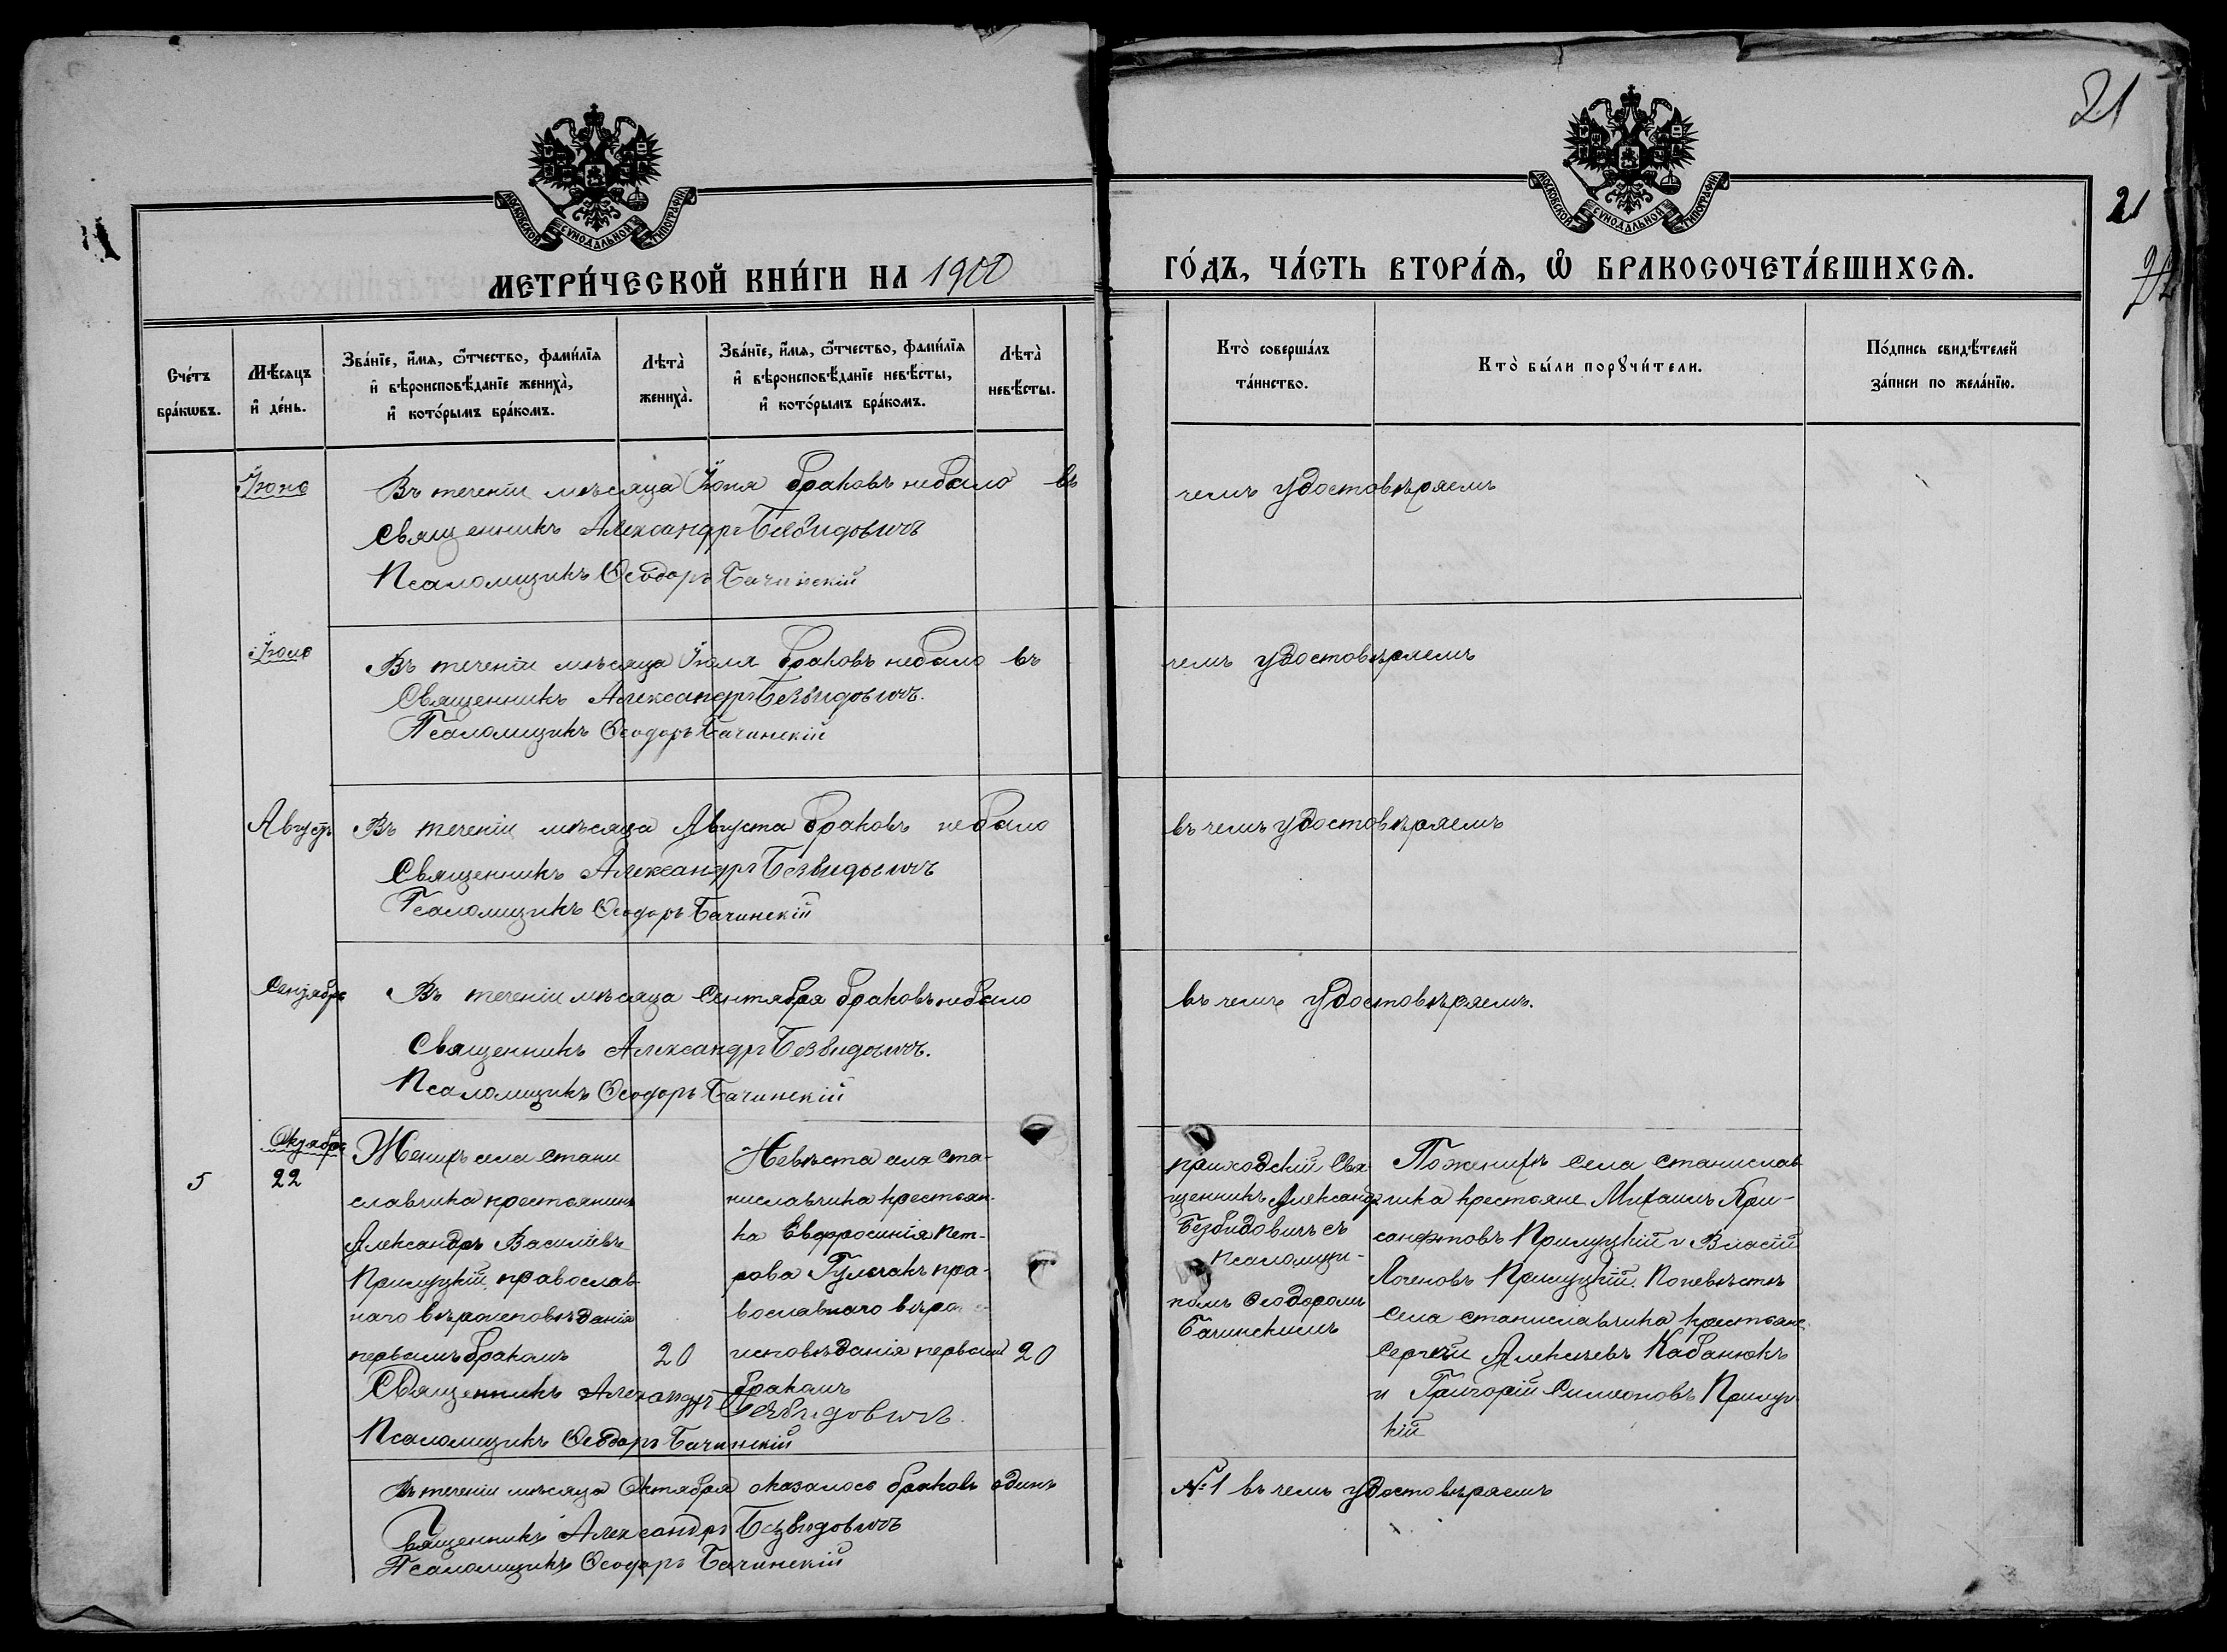 21
21
МОСКОВСКОЙ СУНОДАЛЬНОЙ ТИПОГРАФІИ
МОСКОВСКОЙ СУНОДАЛЬНОЙ ТИПОГРАФІИ
МЕТРИ́ЧЕСКОЙ КНИ́ГИ НА 1900
ГО́ДЪ, ЧА́СТЬ ВТОРА́Ѧ, Ѡ҆ БРАКОСОЧЕТА́ВШИХСѦ.
Сче́тъ бра́кѡвъ.
Мѣ́сяцъ и҆ де́нь.
Зва́нїе, и҆́мѧ, ѻ҆́тчество, фами́лїѧ
и҆ вѣроисповѣ́данїе жениха̀,
и҆ кото́рымъ бра́комъ.
Лѣта̀ жениха̀.
Зва́нїе, и҆́мѧ, ѻ҆́тчество, фами́лїѧ
и҆ вѣроисповѣ́данїе невѣ́сты,
и҆ кото́рымъ бра́комъ.
Лѣта̀ невѣ́сты.
Кто̀ соверша́лъ
та́инство.
Кто̀ бы́ли порꙋчи́тели.
По́дпись свидѣ́телей
за́писи по жела́нїю.
Іюнь
Въ теченіи мѣсяца Іюня браковъ небыло въ
чемъ удостовѣряемъ
Священникъ Александръ Безвидовичъ
Псаломщикъ Ѳеодоръ Бачинскій
Іюль
Въ теченіи мѣсяца Іюля браковъ небыло въ
чемъ удостовѣряемъ
Священникъ Александръ Безвидовичъ.
Псаломщикъ Ѳеодоръ Бачинскій
Августъ
Въ теченіи мѣсяца Августа браковъ небыло
въ чемъ удостовѣряемъ
Священникъ Александръ Безвидовичъ
Псаломщикъ Ѳеодоръ Бачинскій
Сентябрь
Въ теченіи мѣсяца Сентября браковъ небыло
въ чемъ удостовѣряемъ.
Священникъ Александръ Безвидовичъ.
Псаломщикъ Ѳеодоръ Бачинскій
5
Октябрь
22
Женихъ села Стани
славчика крестьянинъ
Александръ Василіевъ
Прилуцкій, православ-
наго вѣроисповѣданія
первымъ бракомъ
20
Невѣста села Ста-
ниславчика крестьян-
ка Евфросинія Пет-
рова Гульчакъ пра-
вославнаго вѣро
исповѣданія первымъ
бракомъ
20
Приходскій Свя
щенникъ Александръ
Безвидовичъ съ
Псаломщи-
комъ Ѳеодоромъ
Бачинскимъ
По женихѣ села Станислав
чика крестьяне Михаилъ Хри-
санфовъ Прилуцкій и Власій
Прилуцкій. По невѣстѣ
села Станиславчика крестьяне
Сергѣй Алексѣевъ Кабанюкъ
и Григорій Симеоновъ Прилуц-
кій
Священникъ Александръ Безвидовичъ.
Псаломщикъ Ѳеодоръ Бачинскій
Въ теченіи мѣсяца Октября оказалось браковъ одинъ
№ 1 въ чемъ удостовѣряемъ
Священникъ Александръ Безвидовичъ
Псаломщикъ Ѳеодоръ Бачинскій